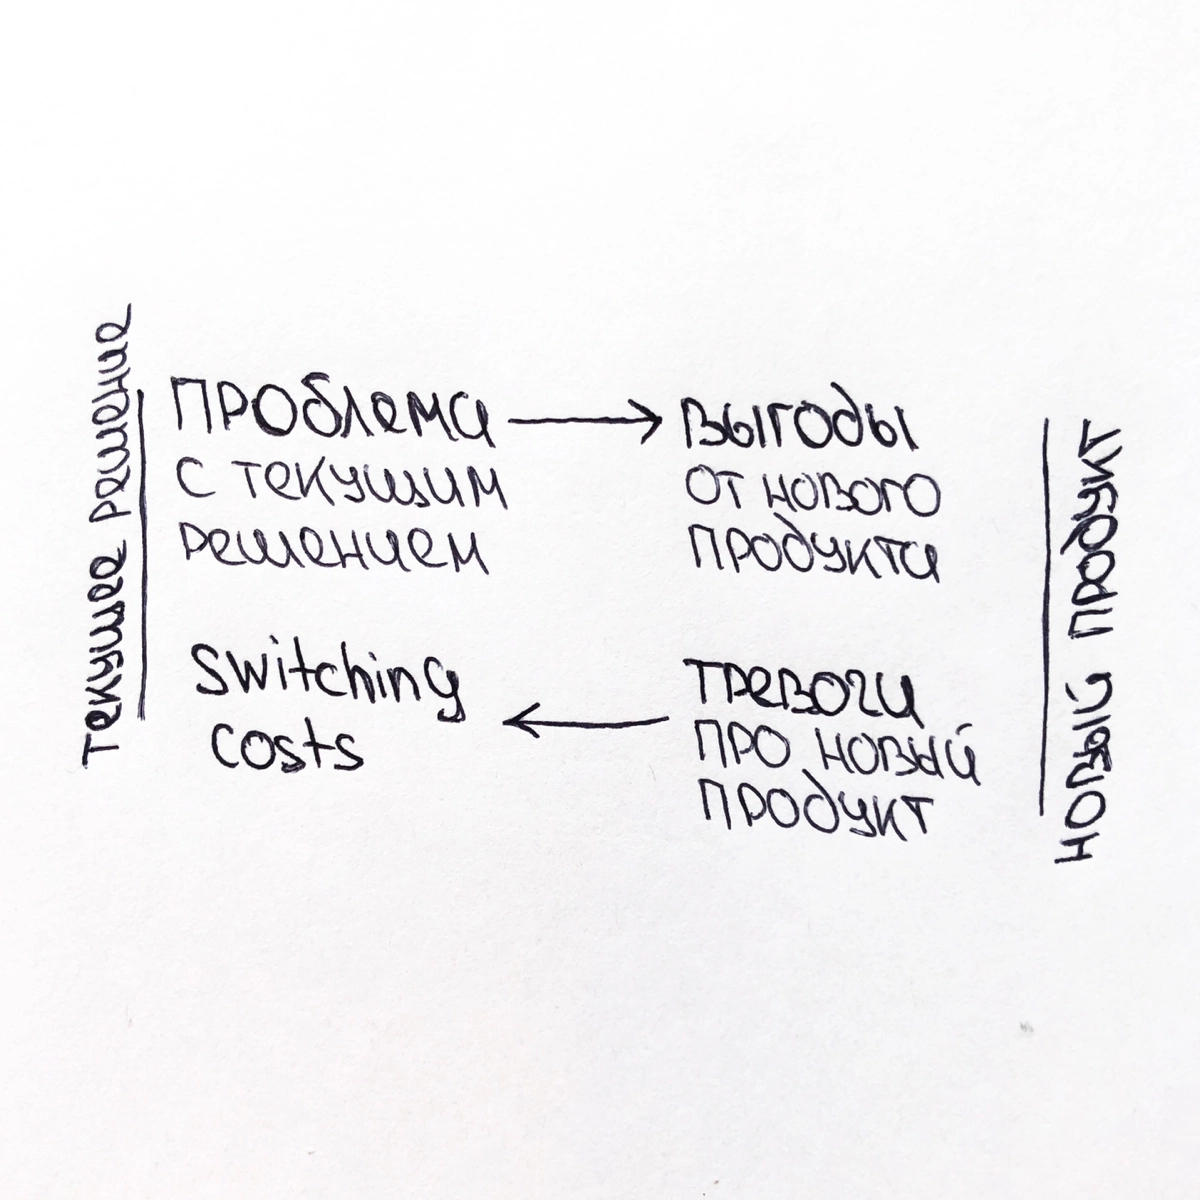 Текущее решение
Проблема
с текущим
решением
выгоды
от нового
продукта
switching
costs
тревоги
про новый
продукт
новый продукт